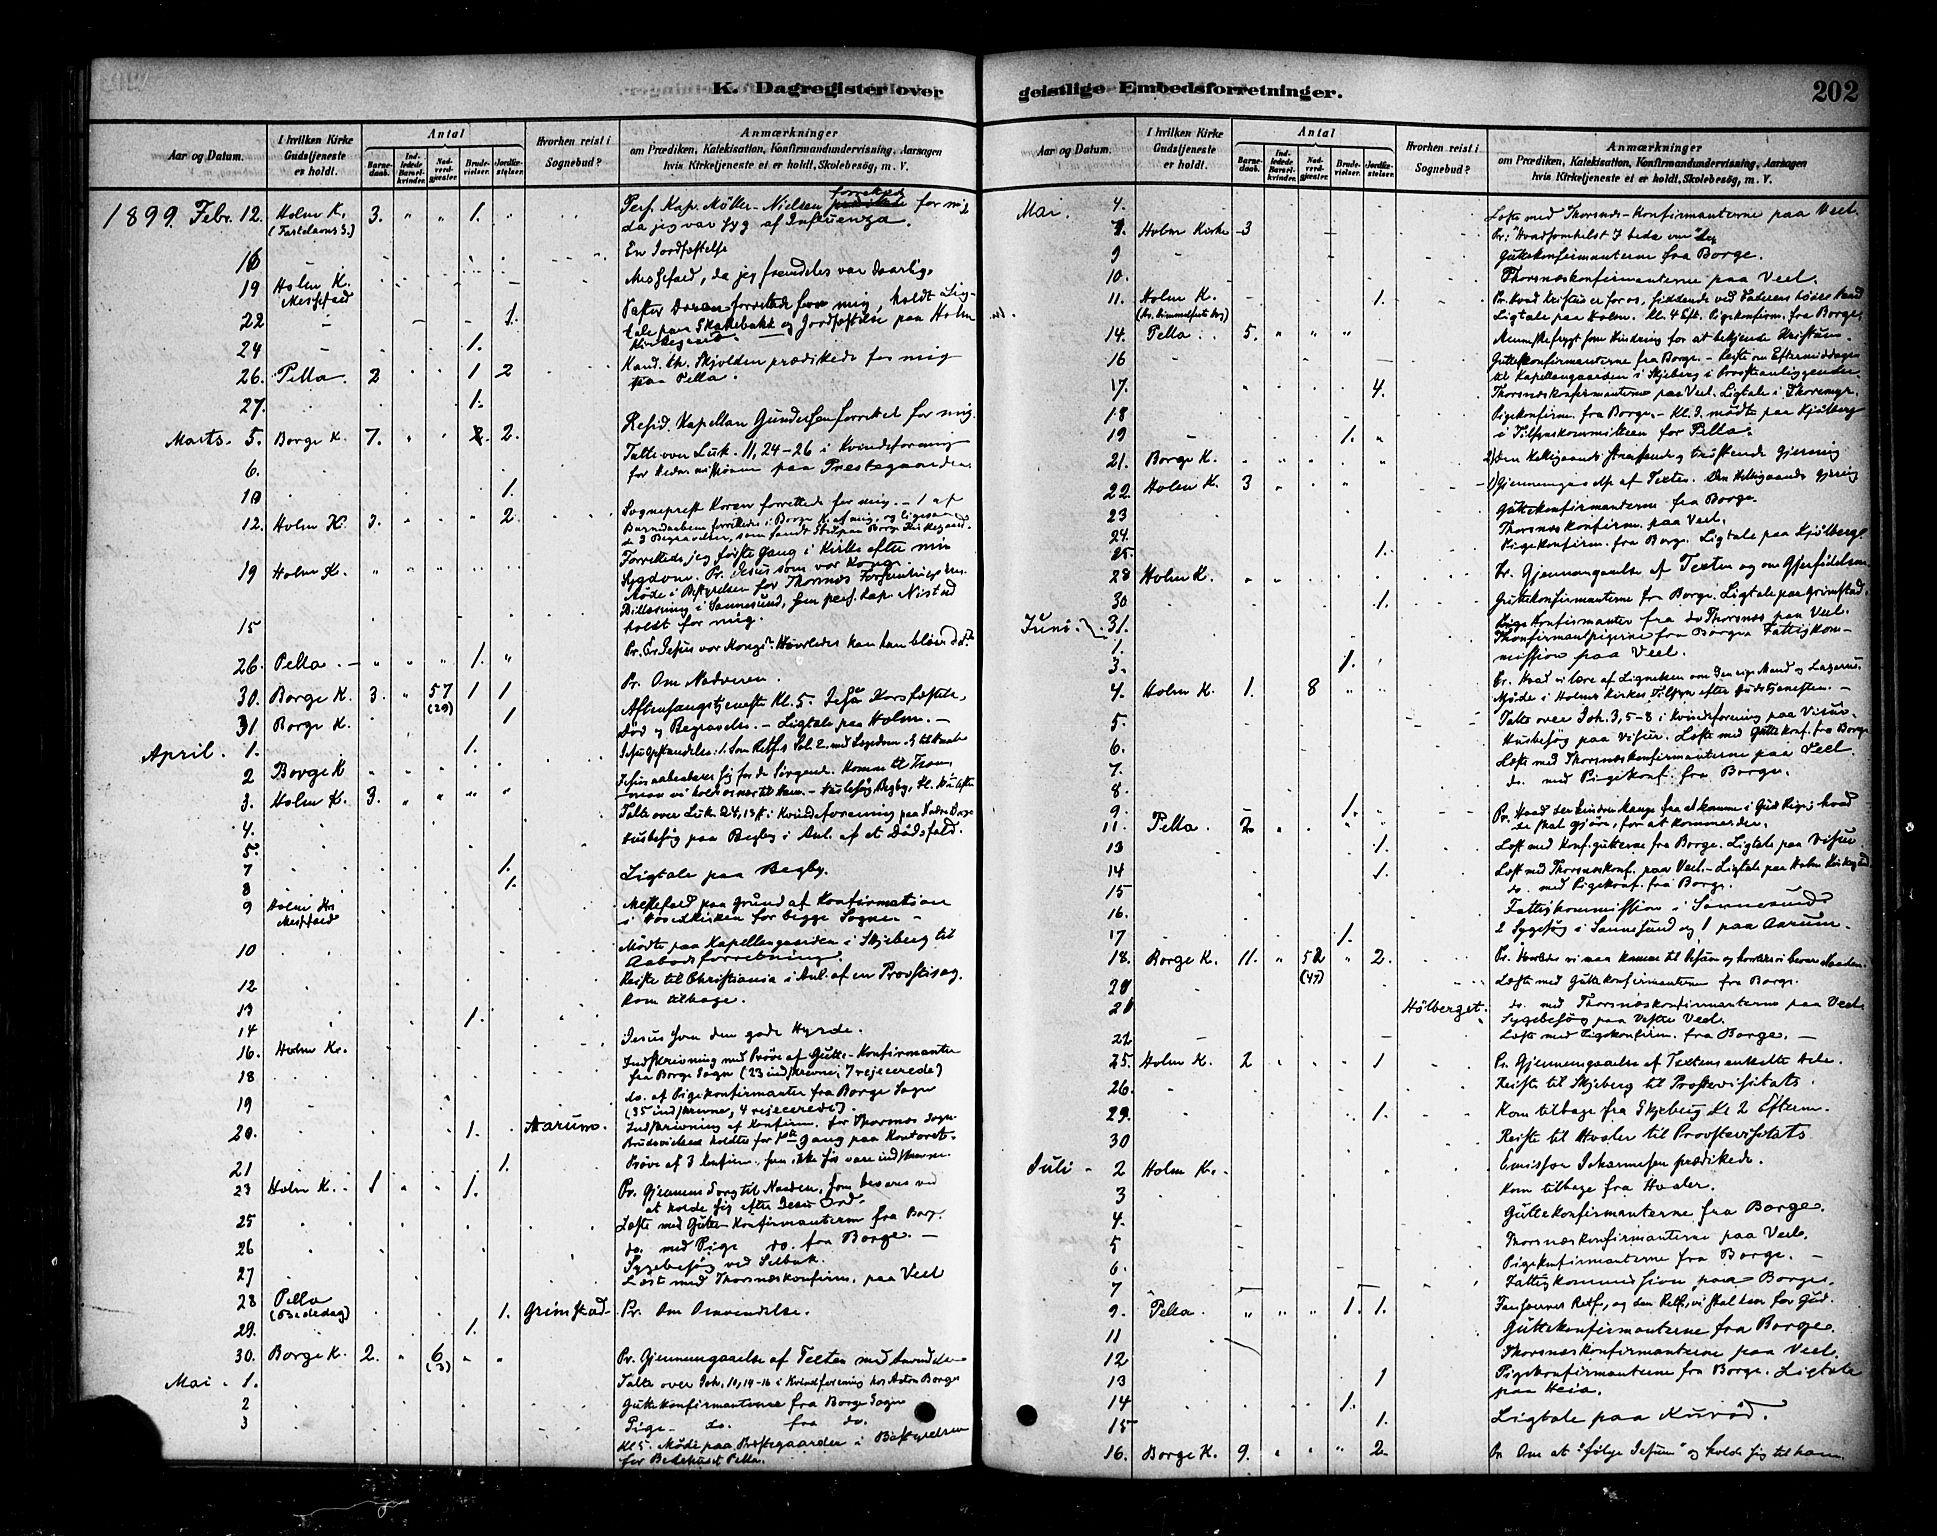 K. Dagregister over
Aar og Datum.
I hvilken Kirke Gudstjeneste er holdt.
Antal
Barnedaab.
Indledede Barselkvinder.
Nadverdgjester.
Brudevielser.
Jordfæstelser.
Hvorhen reist i Sognebud?
Anmærkninger
om Prædiken, Katekisation, Konfirmandundervisning, Aarsagen
hvis Kirketjeneste ei er holdt, Skolebesøg, m. V.
1899. Febr. 12. Holm K. 3. " " 1. " Pers. Kap. Møller-Nielsen forrettede for mig
(Fastelavns S.) da jeg var syg af Influenza.
16 En Jordfæstelse
19 Holm K. Messefald, da jeg fremdeles var daarlig.
Messefald
22 1. forrettede for mig, holdt Lig-
tale paa og Jordfæstelse paa Holm
24 1. Kirkegaard.
26. Pella. 2 1 2 Kand. th. Skjolden prædikede for mig
paa Pella.
27. 1.
Marts. 5. Borge K. 7. 2. Resid. Kapellan Gundersen forrettet for mig.
6. Talte over Luk. 11, 24-26 i Kvindeforening
paa Prestegaarden
10 1.
12. Holm K. 3. 2. Sogneprest Koren forrettede for mig. - 1 af
Barnedaabene forrettedes i Borge K. af mig, og ligesaa
de 3 Begravelser, som fandt Sted paa Borge Kirkegaard.
19 Holm K. Forrettede jeg første Gang i Kirke efter min
Sygdom. Pr. Jesus som vor Konge.
Møde i Bestyrelsen for Thorsnæs
i Sannesund, som pers. Kap. Nistad
15 holdt for mig.
26. Pella. 1. " Pr. Er Jesus vor Konge? Hvorledes kan han blive det?
30. Borge K. 3. " 57 1 1 Pr. Om Nadveren.
(29)
31 Borge K. 1 Aftensangstjeneste Kl. 5. Jesu Korsfæstelse,
Død og Begravelse. - Ligtale paa Holm. -
April. 1. 1.
2 Borge K
3. Holm K. 3. " " " "
4. Talte over Luk. 24, 13 ff. i Kvindeforening paa Nedre Borge
5. Husbesøg paa Begby i Anl. af et Dødsfald.
7 1. Ligtale paa Begby.
8 1.
9 Holm K. Messefald paa Grund af Konfirmation
Messefald i Hovedkirken for begge Sogne -
10 Mødte paa Kapellangaarden i Skjeberg til
Aabodsforretning.
12 Reiste til Christiania i Anl. af en Provstisag.
Kom tilbage.
13 1.
14
16. Holm K. Jesus som den gode Hyrde.
18 Indskrivning med Prøve af Gutte-Konfirmanter
fra Borge Sogn (23 indskrevne, 7 rejecerede)
19 do. af Pigekonfirmanter fra Borge Sogn
(35 indskrevne, 4 rejecerede).
20. 1. Aarum. Indskrivning af Konfirm. for Thorsnæs Sogn.
for 1ste Gang paa Kontoret.
21 1. Prøve af 3 konfirm. som ikke før vare indskrevne.
23 Holm K. 1 1. Pr. Gjennem Sorg til Naaden, som bevares ved
at holde sig efter Jesu Ord.
25 Læste med Gutte-Konfirmanterne fra Borge.
26 do. med Pige do. fra Borge. -
27 Sygebesøg ved Selbak.
Læst med Thorsnæskonfirm. paa Veel
28 Pella 1. Grimstad. Pr. Om Omvendelse.
(Bededag)
29. 1.
30. Borge K. 2. " 6 " " Pr. Gjennemgaaelse af Texten med Anvendelse
(3)
Mai. 1. Talte over Joh. 10, 14-16 i Kvindforening hos Anton Borge
2 Guttekonfirmanterne fra Borge Sogn
3 Pige- do. fra do.
Kl 5. Møde paa Prestegaarden i Bestyrelsen
for Bedehuset Pella.
geistlige Embedsforretninger. 202
Aar og Datum.
I hvilken Kirke Gudstjeneste er holdt.
Antal
Barnedaab.
Indledede Barselkvinder.
Nadverdgjester.
Brudevielser.
Jordfæstelser.
Hvorhen reist i Sognebud?
Anmærkninger
om Prædiken, Katekisation, Konfirmandundervisning, Aarsagen
hvis Kirketjeneste ei er holdt, Skolebesøg, m. V.
Mai. 4. Læste med Thorsnæs-Konfirmanterne paa Veel.
7. Holm Kirke 3 Pr: "Hvadsomhelst I bede om"
9 Guttekonfirmanterne fra Borge.
10. Thorsnæskonfirmanterne paa Veel.
11. Holm K. 1. Pr. Hvad Kristus er for os, siddende ved Faderens høire Haand
(Kr. Himmelfarts Dag) Ligtale paa Holm. Kl. 4 Eft. Pigekonfirm. fra Borge.
14. Pella. 5. Menneskefrygt som Hindring for at bekjende Kristum.
16 Guttekonfirmanterne fra Borge. - Reiste om Eftermiddagen
til Kapellangaarden i Skjeberg i Provstianliggender.
17. 4. Thorsnæskonfirmanterne paa Veel. Ligtale i Thorsmyr.
18 Pigekonfirm. fra Borge. - Kl. 3. mødte paa Kjølberg
19 1. " i Tilsynskommitteen for Pella.
21. Borge K. 2) Den Helligaands straffende og trøstende Gjerning
22. Holm K. 3 1) Gjennemgaaelse af Texten. Den Helligaands Gjerning
23 Guttekonfirmanterne fra Borge.
24. Thorsnæskonfirm. paa Veel.
25. 1. Pigekonfirm. fra Borge. Ligtale paa Kjølberg.
28 Holm K. Pr. Gjennemgaaelse af Texten og om Gjenfødelsen.
30 1. Guttekonfirmanterne fra Borge. Ligtale paa Grimstad.
Juni. 31. Konfirmanter fra Thorsnæs paa Veel.
1. Konfirmantpigerne fra Borge. Fattigkom-
mission paa Veel.
3. 1.
4. Holm K. 1. 8 Pr. Hvad vi lære af Lignelsen om den rige Mand og Lazarus.
Møde i Holms Kirkes Tilsyn efter Gudstjenesten. -
5. Talte over Joh. 3, 5-8 i Kvindeforening paa Visur.
6. Husbesøg paa Visur. Læste med Guttekonf. fra Borge
7. Læste med Thorsnæskonfirmanterne paa Veel.
8. do. med Pigekonf. fra Borge.
9. 1.
11. Pella. 2. Pr. Hvad der hindrer Mange fra at komme i Guds Rige; hvad
de skal gjøre, for at komme der.
13 1. Læst med Konf. gutterne fra Borge. Ligtale paa Visur.
14 1. Læst med Thorsnæskonf. paa Veel. - Ligtale paa Holm Kirkegaard.
15 do. med Pigekonf. fra Borge.
16. Fattigkommission i Sannesund
17 1. 2 Sygebesøg i Sannesund og 1 paa Aarum.
18. Borge K. 11. " 52 " 2. Pr. Hvorledes vi maa komme til Jesum og hvorledes vi bevare Naaden.
(47)
20 Læste med Guttekonfirmanterne fra Borge.
21 Hølberget. do. med Thorsnæskonfirmanterne paa Veel
Sygebesøg paa Vestre Veel.
22 Læste med Pigekonfirm. fra Borge. -
25. Holm K. 2 1 Pr. Gjennemgaaelse af Textens enkelte Dele.
26. Reiste til Skjeberg til Provstevisitats.
29. 1. Kom tilbage fra Skjeberg Kl 2 Efterm.
30 Reiste til Hvaler til Provstevisitats
Juli - 2 Holm K. Emissær Johannesen prædikede.
3 Kom tilbage fra Hvaler.
4. Guttekonfirmanterne fra Borge.
5 Thorsnæskonfirmanterne paa Veel.
6. Pigekonfirmanterne fra Borge. -
7 Fattigkommission paa Borge.
9. Pella. " " " 1. 1. Farisæernes Retf., og den Retf., vi skal have for Gud.
11 Guttekonfirmanterne fra Borge.
12 Thorsnæskonfirmanterne paa Veel.
13 1 Pigekonfirmanterne fra Borge. Ligtale
paa Heia.
14 1.
15 1. Ligtale paa Kurød.
16. Borge K. 9. " " " 2 Pr. Om at "følge Jesum" og holde sig til ham.